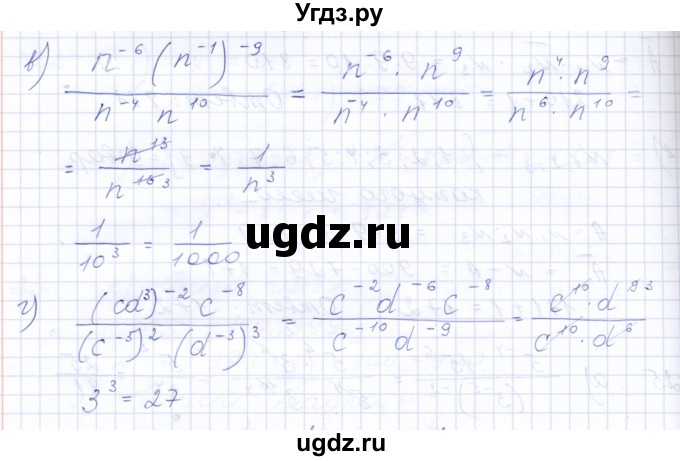 Угдз.ру
в) \frac{n^{-6} (n^{-1})^{-9}}{n^{-4} n^{10}} = \frac{n^{-6} \cdot n^{9}}{n^{-4} \cdot n^{10}} = \frac{n^{4} \cdot n^{9}}{n^{6} \cdot n^{10}} =
= \frac{n^{13}}{n^{16 3}} = \frac{1}{n^{3}}
\frac{1}{10^{3}} = \frac{1}{1000}
ugdz.ru
г) \frac{(cd^{3})^{-2} c^{-8}}{(c^{-5})^{2} (d^{-3})^{3}} = \frac{c^{-2} d^{-6} c^{-8}}{c^{-10} d^{-9}} = \frac{c^{10} \cdot d^{9 3}}{c^{10} \cdot d^{6}}
3^{3} = 27
ugdz.ru